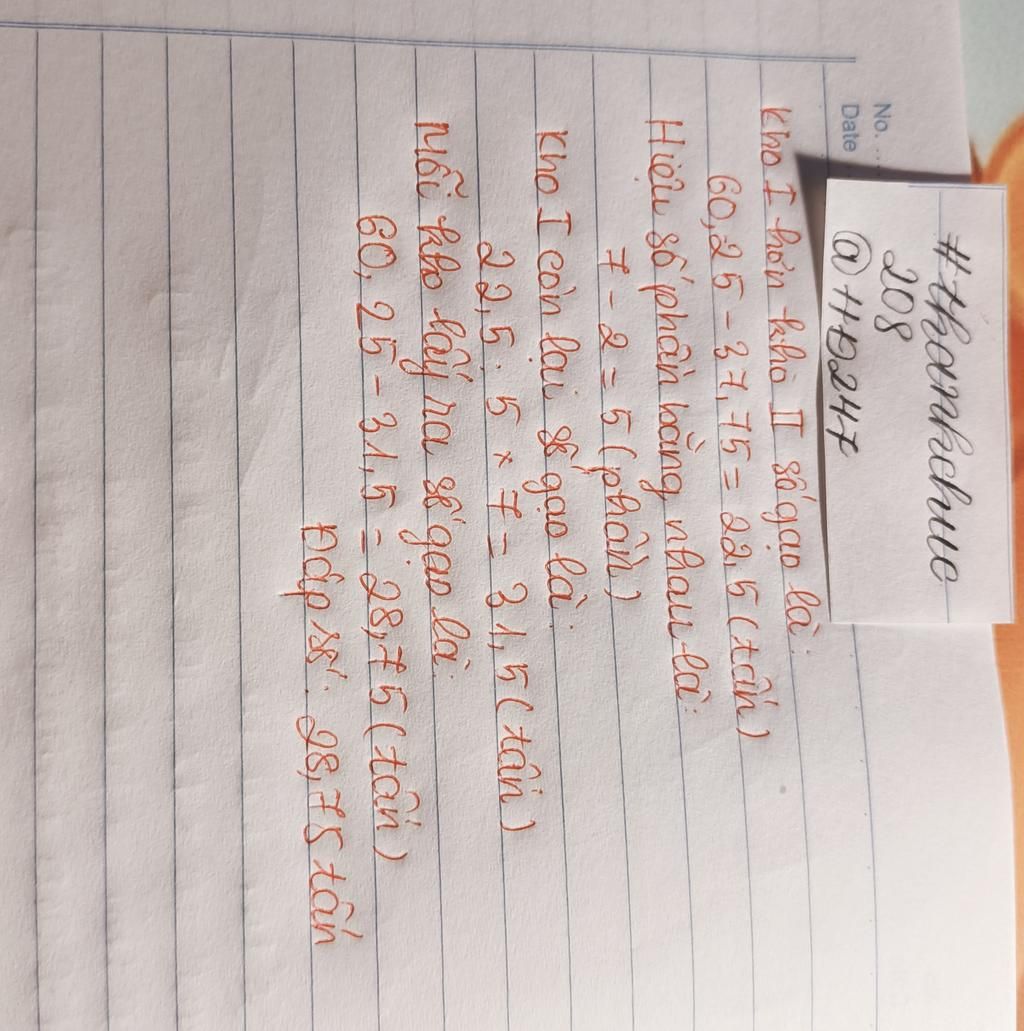 #thanhchuc
208
@HĐ247
No. ....
Date
Kho I hơn kho II số gạo là:
60,25 - 37,75 = 22,5 (tấn)
Hiệu số phần bằng nhau là:
7 - 2 = 5 (phần)
Kho I còn lại số gạo là:
22,5 : 5 × 7 = 31,5 (tấn)
Mỗi kho lấy ra số gạo là:
60,25 - 31,5 = 28,75 (tấn)
Đáp số: 28,75 tấn